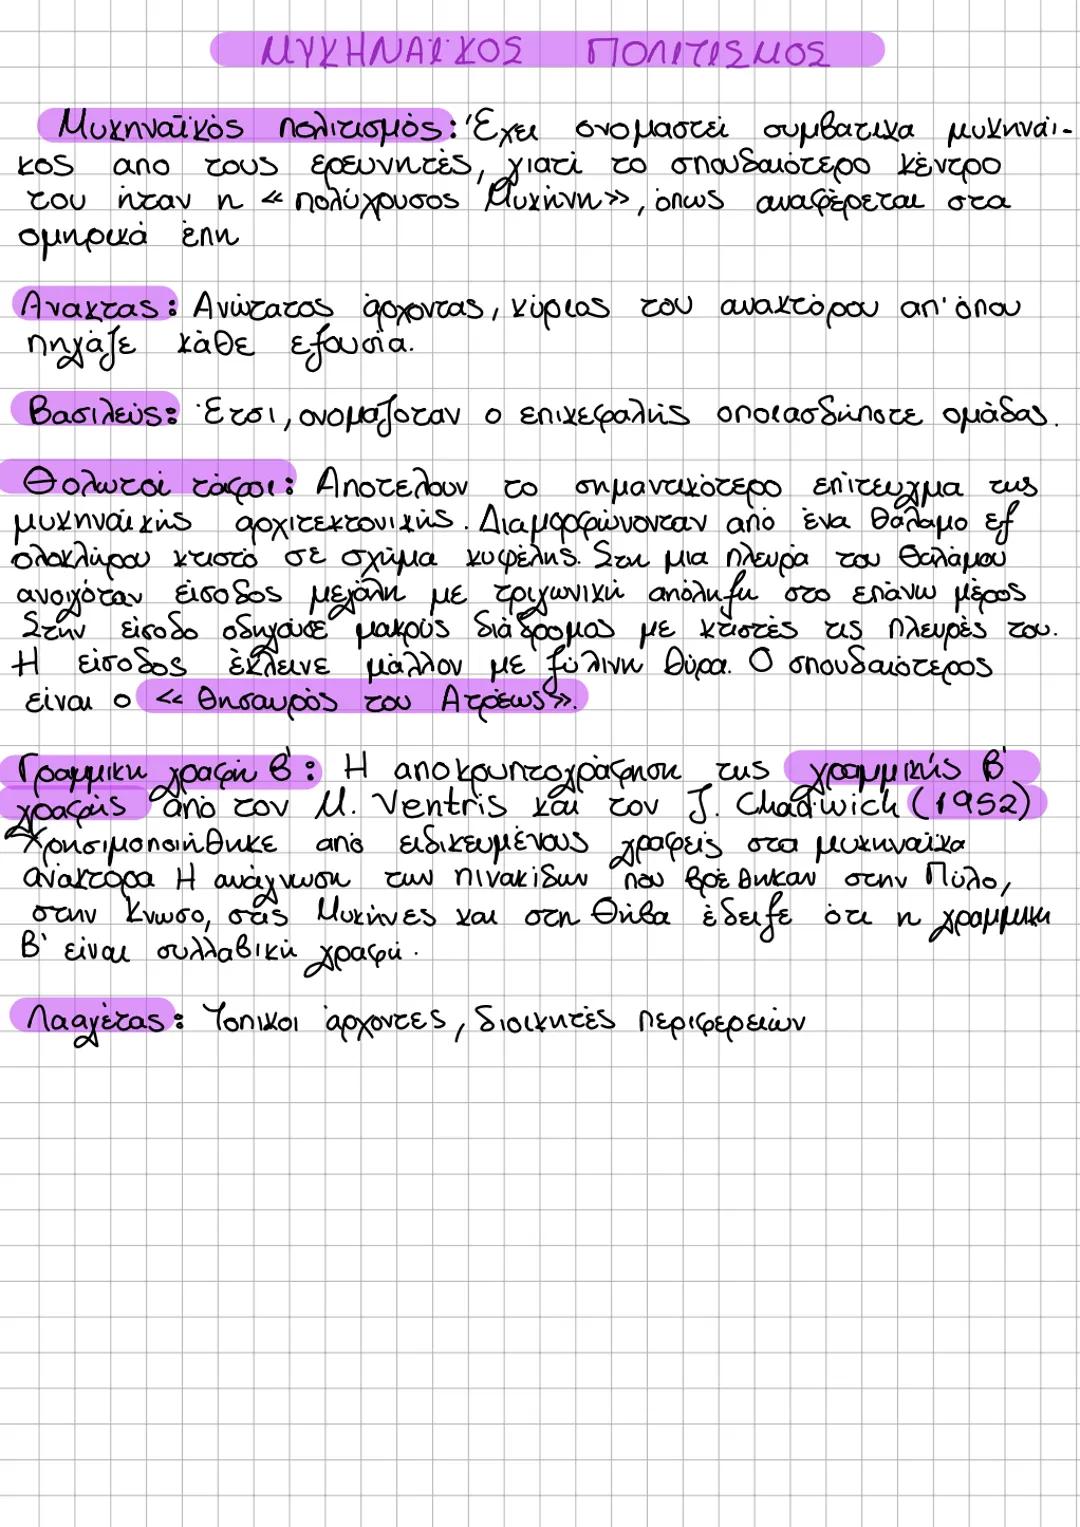 ΜΥΚΗΝΑΪΚΟΣ ΠΟΛΙΤΙΣΜΟΣ
Μυκηναϊκὸς πολιτισμὸς: Έχει ονομαστεί συμβατικα μυκηναϊ-
κος απο τους ερευνητὲς, γιατί το σπουδαιότερο κέντρο
του ήταν η « πολύχρυσος Μυκήνη», όπως αναφέρεται στα
ομηρικά έπη
Ανακτας: Ανώτατος άρχοντας, κύριος του ανακτόρου απ' όπου
πηγάζε κάθε εξουσία.
Βασιλεύς: Έτσι, ονομαζοταν ο επικεφαλής οποιασδήποτε ομάδας.
Θολωτοί τάφοι: Αποτελουν το σημαντικότερο επίτευγμα της
μυκηναϊκής αρχιτεκτονικής. Διαμορφώνονταν από ένα θάλαμο εξ
ολοκλήρου κτιστό σε σχήμα κυφέλης. Στη μια πλευρά του θαλάμου
ανοιγόταν είσοδος μεγάλη με τριγωνική απόληξη στο επάνω μέρος
Στην είσοδο οδηγούσε μακρύς διάδρομος με κτιστές τις πλευρές του.
Η είσοδος έκλεινε μάλλον με ξύλινη θύρα. Ο σπουδαιότερος
είναι ο « Θησαυρός του Ατρέως».
Γραμμικη γραφή Β': Η αποκρυπτογράφηση της γραμμικής Β'
γραφής από τον M. Ventris και τον J. Chadwich (1952)
Χρησιμοποιήθηκε από ειδικευμένους γραφείς στα μυκηναϊκα
ανάκτορα Η ανάγνωση των πινακίδων που βρέθηκαν στην Πύλο,
στην Κνωσο, στις Μυκήνες και στη Θήβα έδειξε ότι η γραμμικη
Β' είναι συλλαβική γραφή.
Λααγέτας: Τοπικοι άρχοντες, διοικητές περιφερειών